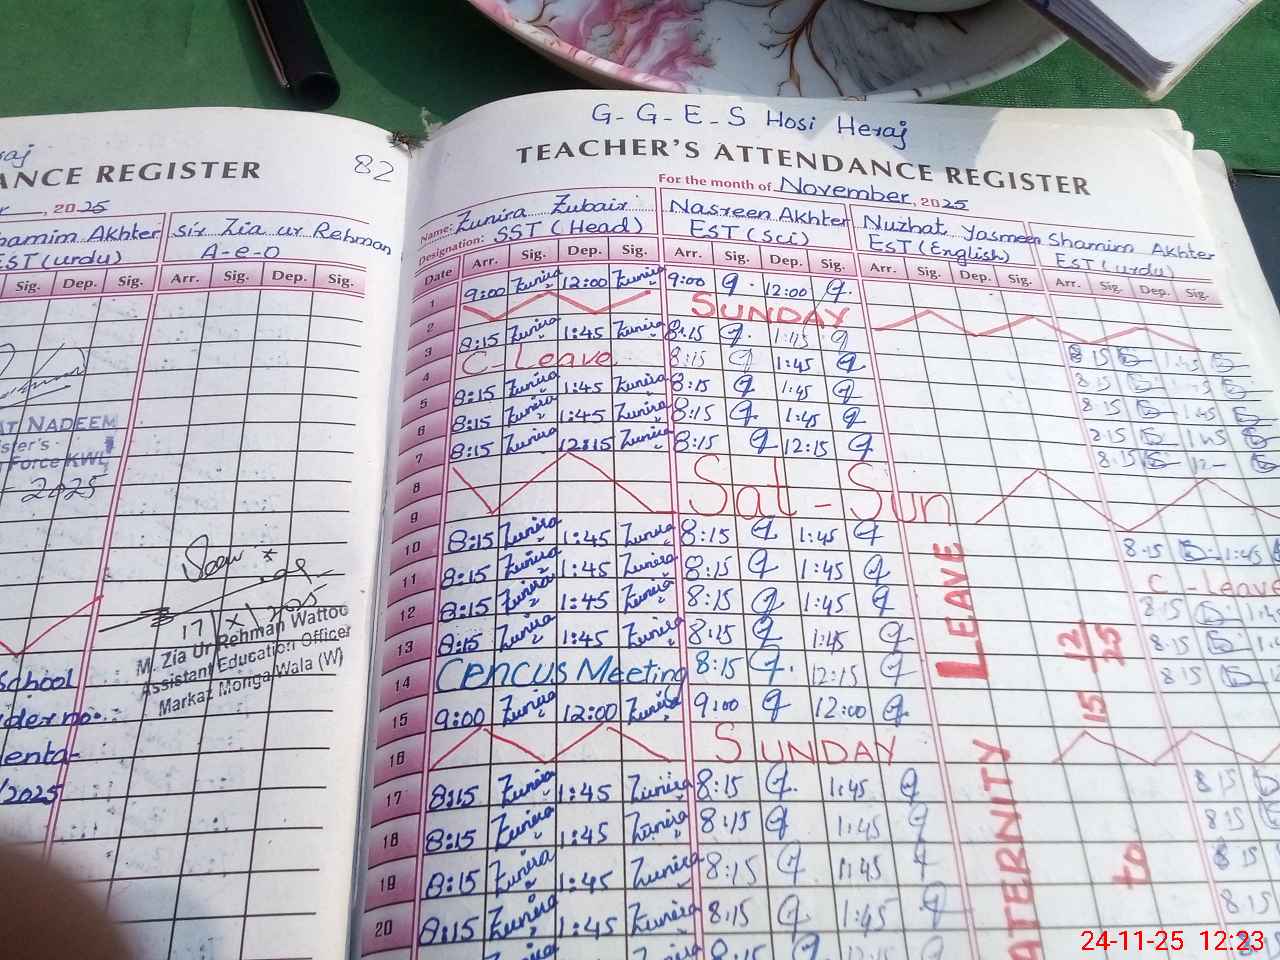 G-G-E-S Hosi Heraj
TEACHER'S ATTENDANCE REGISTER
For the month of November, 2025
Name: Zunira Zubair Nasreen Akhter Nuzhat Yasmeen Shamim Akhter
Designation: SST (Head) EST (Sci) EST (English) EST (urdu)
Date Arr. Sig. Dep. Sig. Arr. Sig. Dep. Sig. Arr. Sig. Dep. Sig. Arr. Sig. Dep. Sig.
1 9:00 Zunira 12:00 Zunira 9:00 12:00
2 SUNDAY
3 8:15 Zunira 1:45 Zunira 8:15 1:45 8 15 1:45
4 C-Leave 8:15 1:45 8:15
5 8:15 Zunira 1:45 Zunira 8:15 1:45 8:15 1:45
6 8:15 Zunira 1:45 Zunira 8:15 1:45 8:15 1:45
7 8:15 Zunira 12:15 Zunira 8:15 12:15 8:15
8 Sat-Sun
9
10 8:15 Zunira 1:45 Zunira 8:15 1:45 8:15 1:45
11 8:15 Zunira 1:45 Zunira 8:15 1:45 C-Leave
12 8:15 Zunira 1:45 Zunira 8:15 1:45 8:15
13 8:15 Zunira 1:45 Zunira 8:15 1:45 8:15
14 Cencus Meeting 8:15 12:15 8:15
15 9:00 Zunira 12:00 Zunira 9:00 12:00
16 SUNDAY
17 8:15 Zunira 1:45 Zunira 8:15 1:45 8:15
18 8:15 Zunira 1:45 Zunira 8:15 1:45 8:15
19 8:15 Zunira 1:45 Zunira 8:15 1:45 8 15
20 8:15 Zunira 1:45 Zunira 8:15 1:45 8:15
LEAVE
ATERNITY
15 12/25
to
raj
ANCE REGISTER 82
, 2025
hamim Akhter sir Zia ur Rehman
EST (urdu) A-e-O
Sig. Dep. Sig. Arr. Sig. Dep. Sig.
AT NADEEM
ister's
Force KWL
2025
Seen
17/X/2025
M. Zia Ur Rehman Wattoo
Assistant Education Officer
Markaz Monga Wala (W)
School
der no.
enta-
/2025
24-11-25 12:23